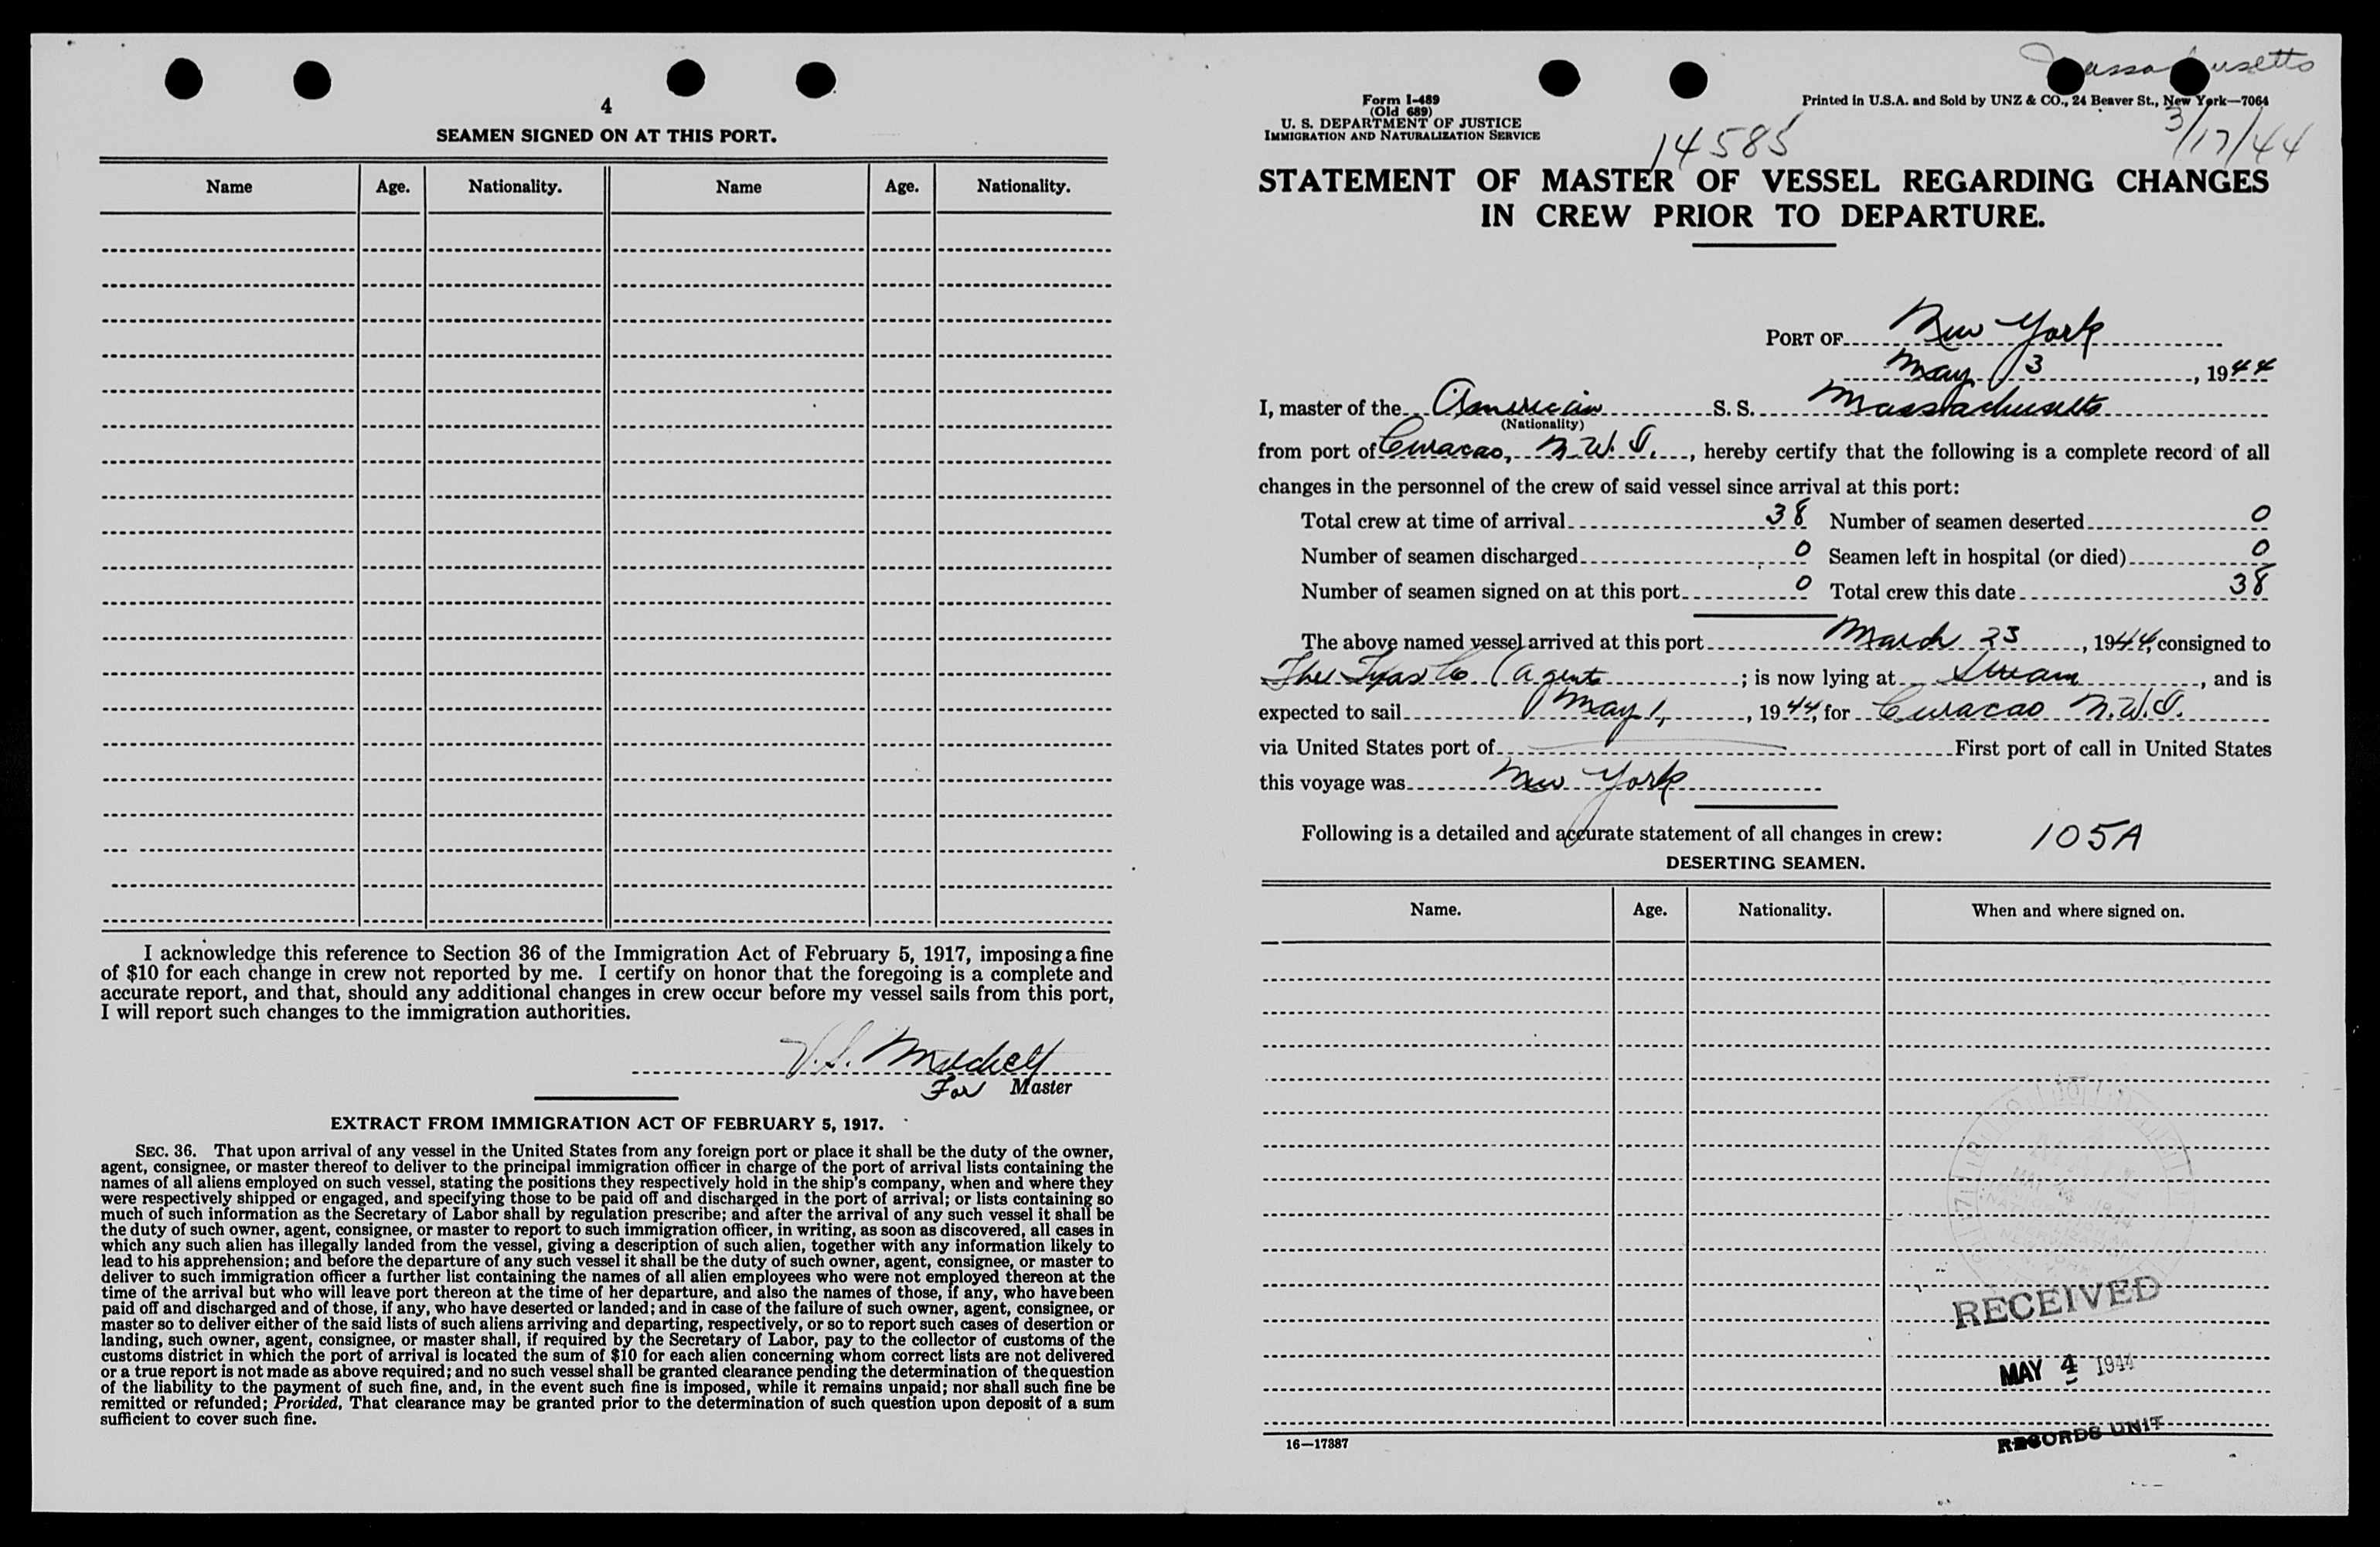 4
SEAMEN SIGNED ON AT THIS PORT.
Name Age. Nationality. Name Age. Nationality.
I acknowledge this reference to Section 36 of the Immigration Act of February 5, 1917, imposing a fine
of $10 for each change in crew not reported by me. I certify on honor that the foregoing is a complete and
accurate report, and that, should any additional changes in crew occur before my vessel sails from this port,
I will report such changes to the immigration authorities.
V.S. Mitchell
For Master
EXTRACT FROM IMMIGRATION ACT OF FEBRUARY 5, 1917.
SEC. 36. That upon arrival of any vessel in the United States from any foreign port or place it shall be the duty of the owner,
agent, consignee, or master thereof to deliver to the principal immigration officer in charge of the port of arrival lists containing the
names of all aliens employed on such vessel, stating the positions they respectively hold in the ship's company, when and where they
were respectively shipped or engaged, and specifying those to be paid off and discharged in the port of arrival; or lists containing so
much of such information as the Secretary of Labor shall by regulation prescribe; and after the arrival of any such vessel it shall be
the duty of such owner, agent, consignee, or master to report to such immigration officer, in writing, as soon as discovered, all cases in
which any such alien has illegally landed from the vessel, giving a description of such alien, together with any information likely to
lead to his apprehension; and before the departure of any such vessel it shall be the duty of such owner, agent, consignee, or master to
deliver to such immigration officer a further list containing the names of all alien employees who were not employed thereon at the
time of the arrival but who will leave port thereon at the time of her departure, and also the names of those, if any, who have been
paid off and discharged and of those, if any, who have deserted or landed; and in case of the failure of such owner, agent, consignee, or
master so to deliver either of the said lists of such aliens arriving and departing, respectively, or so to report such cases of desertion or
landing, such owner, agent, consignee, or master shall, if required by the Secretary of Labor, pay to the collector of customs of the
customs district in which the port of arrival is located the sum of $10 for each alien concerning whom correct lists are not delivered
or a true report is not made as above required; and no such vessel shall be granted clearance pending the determination of the question
of the liability to the payment of such fine, and, in the event such fine is imposed, while it remains unpaid; nor shall such fine be
remitted or refunded; Provided, That clearance may be granted prior to the determination of such question upon deposit of a sum
sufficient to cover such fine.
Massachusetts
Form I-489
(Old 689)
U. S. DEPARTMENT OF JUSTICE
IMMIGRATION AND NATURALIZATION SERVICE
Printed in U.S.A. and Sold by UNZ & CO., 24 Beaver St., New York—7064
14585
3/17/44
STATEMENT OF MASTER OF VESSEL REGARDING CHANGES
IN CREW PRIOR TO DEPARTURE.
PORT OF New York
May 3, 1944
I, master of the American S. S. Massachusetts
(Nationality)
from port of Curacao, N.W.I., hereby certify that the following is a complete record of all
changes in the personnel of the crew of said vessel since arrival at this port:
Total crew at time of arrival 38 Number of seamen deserted 0
Number of seamen discharged 0 Seamen left in hospital (or died) 0
Number of seamen signed on at this port 0 Total crew this date 38
The above named vessel arrived at this port March 23, 1944, consigned to
The Texas Co (Agent ; is now lying at Stream, and is
expected to sail May 1, 1944, for Curacao N.W.I.
via United States port of First port of call in United States
this voyage was New York
Following is a detailed and accurate statement of all changes in crew: 105A
DESERTING SEAMEN.
Name. Age. Nationality. When and where signed on.
RECEIVED
MAY 4 1944
RECORDS UNIT
16—17387